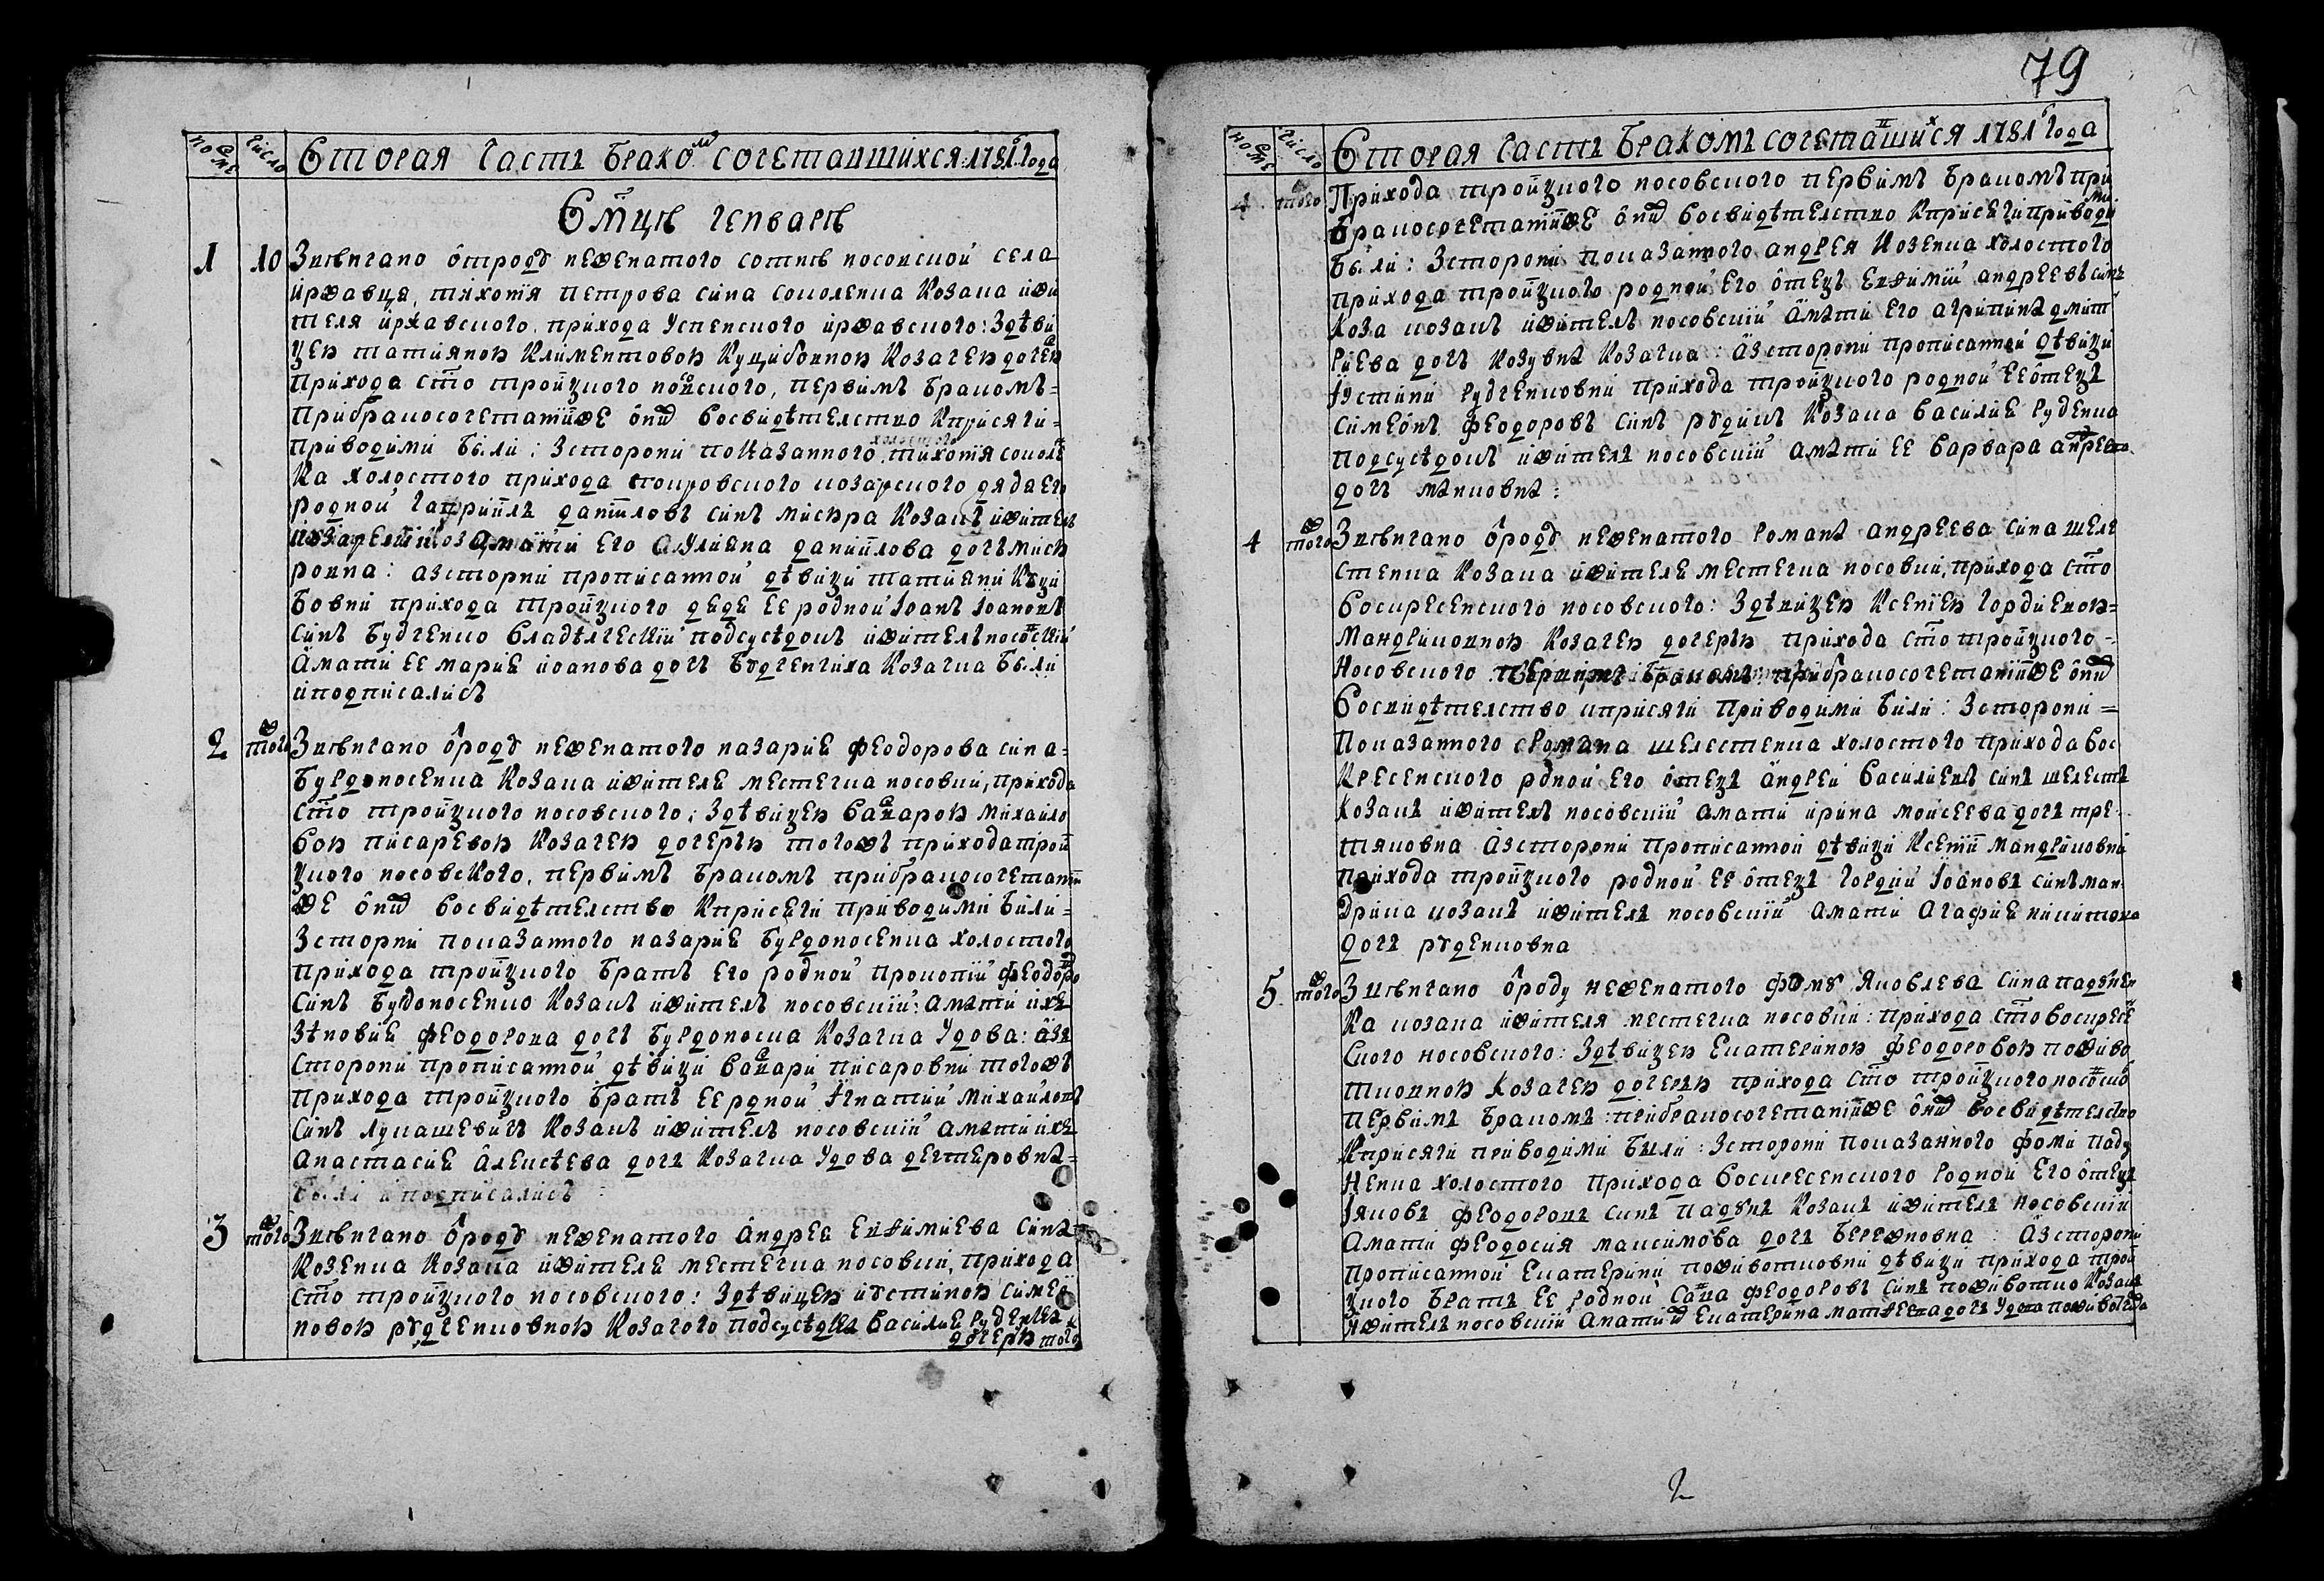 номе число Вторая часть бракомъ сочетавшихся: 1781 года
Вмцѣ генварѣ
1 10 Звѣнчано отрока неженатого сотнѣ носовской села
иржавця, тихония петрова сина соколенка козака ижи
теля иржавского, прихода успенского иржавского: здѣви
цею татияною климентовою куцибовною козачею дочер
прихода сто тройцкого носовского, первимъ бракомъ=
прибракосочетанїиже онд восвидѣтелство кприсяги=
приводими були: зсторони показанного тихония соколе
ка холостого прихода покровского козарского дядя его
родной гавриилъ даниловъ синъ козакъ ижитель
его данилова дочъ миск
ровна: азсторни прописанной дѣвици татияни куци
бовни прихода тройцкого дядя ее родной Іоанъ Іоановъ
синъ будченко владѣлческїй подсусѣдокъ ижителъ носовскїй
амати ее мария иоанова дочъ будченчиха козачка були
иподписалисъ
2 того Звѣнчано отрока неженатого назария феодорова сина=
бурдоносенка козака ижителя местечка носовки, прихода
сто тройцкого носовского: здѣвицею варварою михайло
вою писаревою козачею дочерью тогожъ прихода трой
цкого носовского, первимъ бракомъ прибракосочетанїи
же онд восвидѣтелство кприсяги приводими били=
зсторни показанного назария бурдоносенка холостого
прихода тройцкого братъ его родной прокопїй феодоро
синъ бурдоносенко козакъ ижителъ носовскїй: амати ихъ
зѣновия феодорова дочъ бурдоноска козачка удова: азъ
сторони прописанной дѣвици варвари писаровни тогожъ
прихода тройцкого братъ ее родной Ігнатий михайловъ
синъ лукашевичъ козакъ ижителъ носовскїй амати ихъ
анастасия алексѣева дочъ козачка удова дегтяровнъ=
були иподписалисъ
3 того Звѣнчано отрока неженатого андрея евѳимиева сина
козенка козака ижителя местечка носовки, прихода
сто тройцкого носовского: здѣвицею иустиною симео
новою рудченковною козачого подсусѣдка василия руденка
дочерью того
79
номе число Вторая часть бракомъ сочетавшихся 1781 года
4 того Прихода тройцкого носовского первимъ бракомъ при
бракосочетанїиже онд восвидѣтелство кприсяги приводими
були: зсторони показанного андрея козенка холостого
прихода тройцкого родной его отецъ евѳимий андреевъ синъ
коза козакъ ижителъ носовскїй амати его агрипина дмит
риева дочъ козувна козачка: азсторони прописанной дѣвици
Іустини рудченковни прихода тройцкого родной ее отецъ
симеонъ феодоровъ синъ рудикъ козака василия руденка
подсусѣдокъ ижителъ носовскїй амати ее варвара
дочъ
4 того Звѣнчано отрока неженатого романа андреева сина шеле
стенка козака ижителя местечка носовки, прихода сто
воскресенского носовского: здѣвицею ксениею гордиевою=
мандриковною козачею дочерью прихода сто тройцкого=
носовского первимъ бракомъ: прибракосочетанїиже онд
восвидѣтелство кприсяги приводими били: зсторони=
показанного романа шелестенка холостого прихода вос
кресенского родной его отецъ андрей василиевъ синъ шелестъ
козакъ ижителъ носовскїй амати ирина моисеева дочъ тре
тяковна азсторони прописанной дѣвици ксении мандриковни
прихода тройцкого родной ее отецъ гордий Іоановъ синъ ман
дрика козакъ ижителъ носовскїй амати агафия никитова
дочъ руденковна
5 того Звѣнчано отроку неженатого фому яковлева сина падунен
ка козака ижителя местечка носовки: прихода сто воскресен
ского носовского: здѣвицею екатериною феодоровою поживо
тковною козачею дочерью прихода сто тройцкого носовско
первимъ бракомъ: прибракосочетанїиже онд восвидѣтелство
кприсяги приводими були: зсторони показанного фоми паду
ненка холостого прихода воскресенского родной его отецъ
Іяковъ феодоровъ синъ падунъ козакъ ижителъ носовскїй
амати феодосия максимова дочъ бережовна: азсторони
прописанной екатерини поживотковни дѣвици прихода трой
цкого братъ ее родной савва феодоровъ синъ поживотко козакъ
ижителъ носовскїй амати екатерина матвеева дочъ удова
2